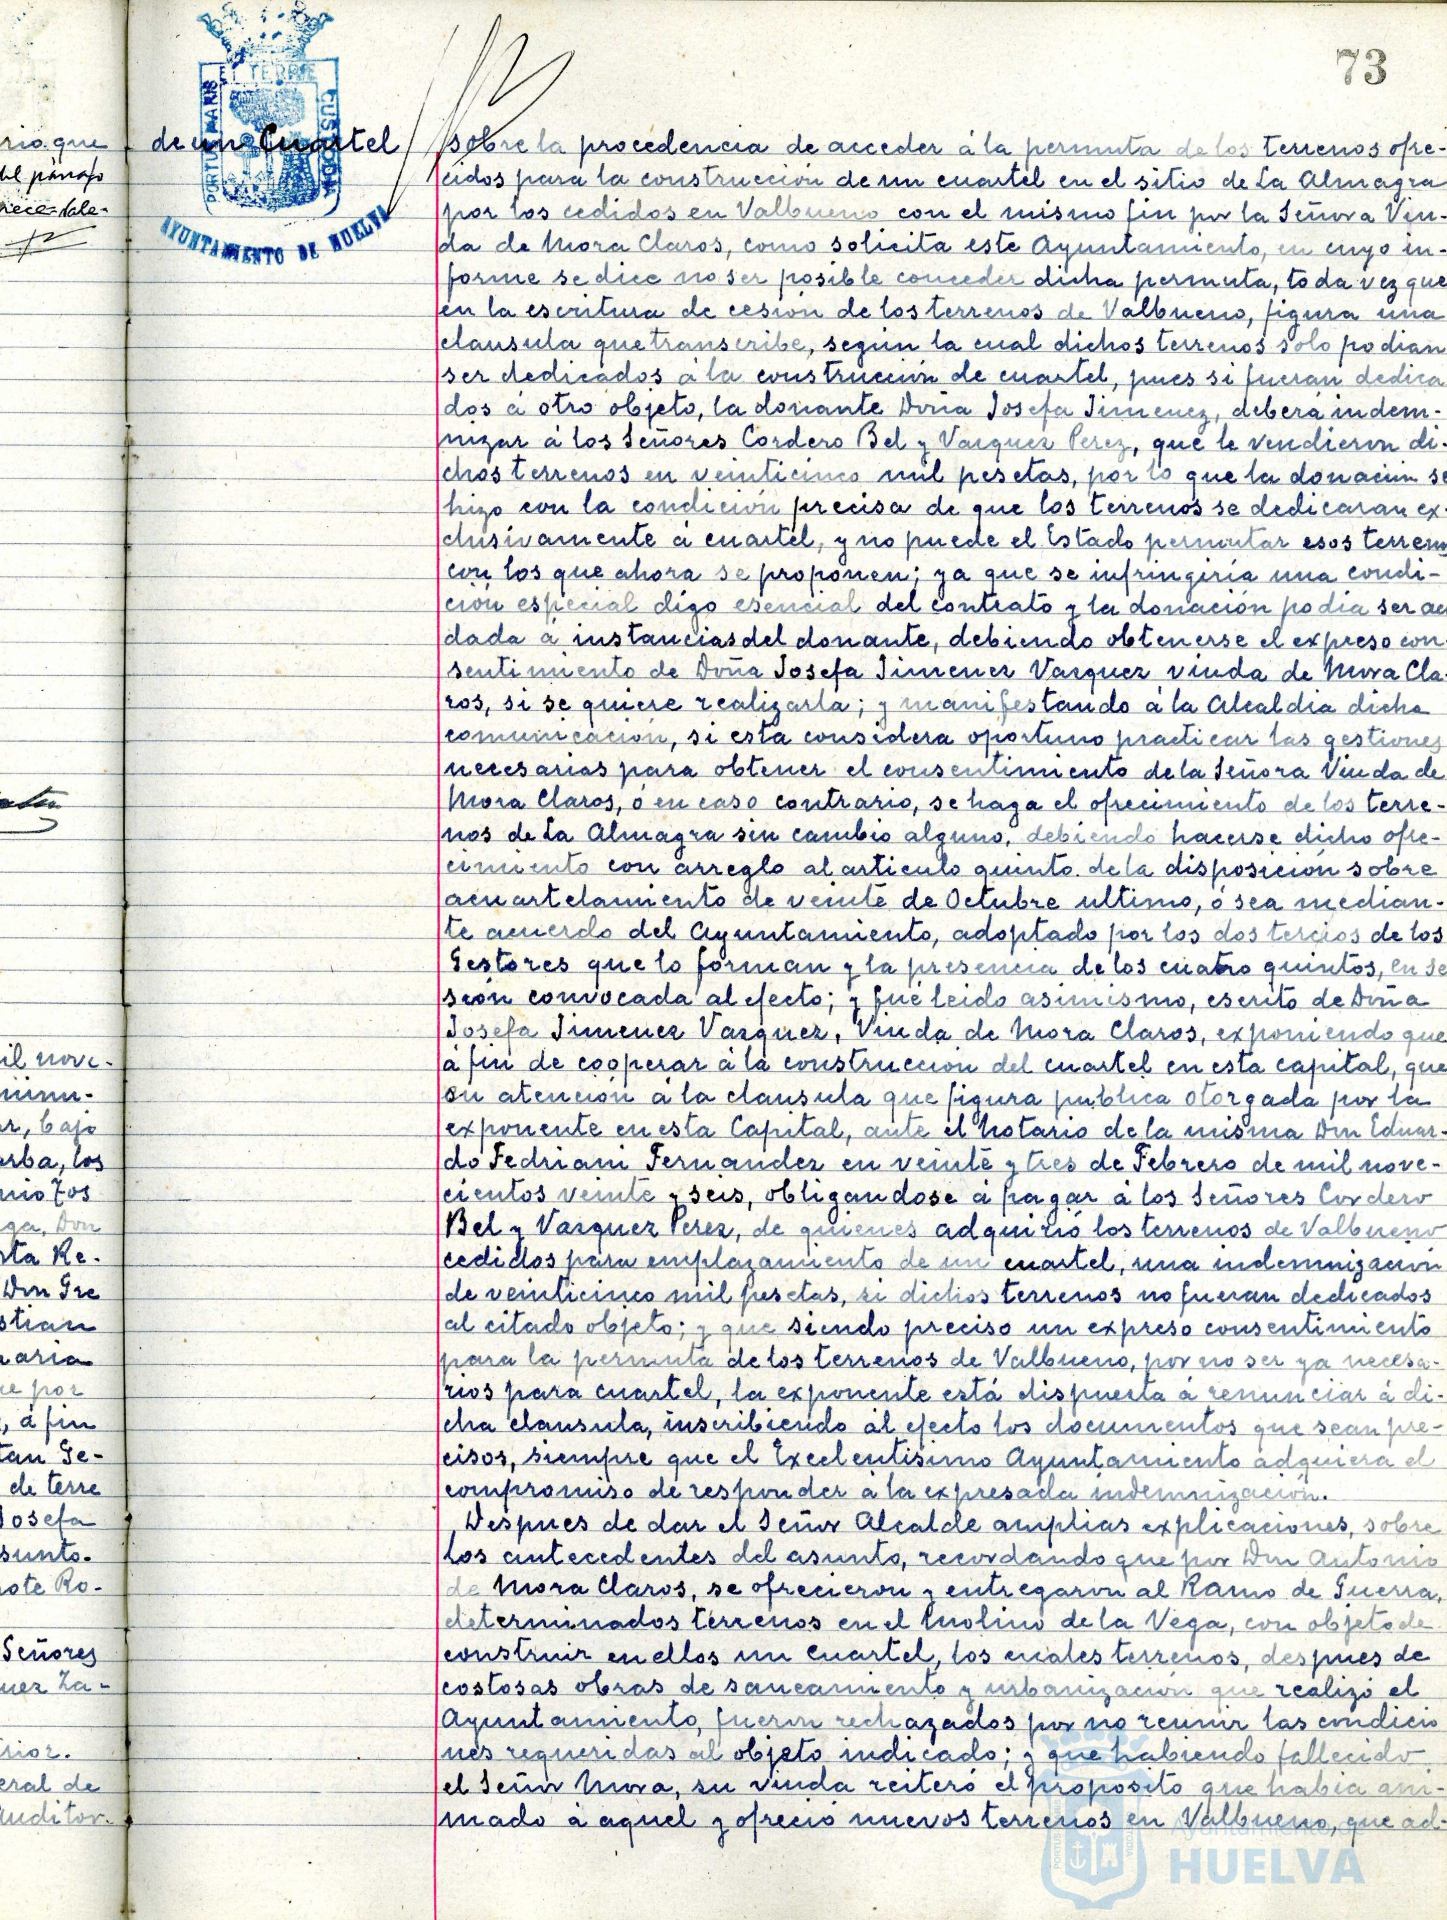 73
PORTUS MARIS
ET TERRE
CUSTODIA
AYUNTAMIENTO DE HUELVA
de un Cuartel
sobre la procedencia de acceder á la permuta de los terrenos ofre-
cidos para la construcción de un cuartel en el sitio de La Almagra
por los cedidos en Valbueno con el mismo fin por la Señora Viu-
da de Mora Claros, como solicita este Ayuntamiento, en cuyo in-
forme se dice no ser posible conceder dicha permuta, toda vez que
en la escritura de cesión de los terrenos de Valbueno, figura una
clausula que transcribe, según la cual dichos terrenos solo podian
ser dedicados á la construcción de cuartel, pues si fueran dedica
dos á otro objeto, la donante Doña Josefa Jimenez, deberá indem-
nizar á los Señores Cordero Bel y Vazquez Perez, que le vendieron di-
chos terrenos en veinticinco mil pesetas, por lo que la donación se
hizo con la condición precisa de que los terrenos se dedicaran ex-
clusivamente á cuartel, y no puede el Estado permutar esos terrenos
con los que ahora se proponen; ya que se infringiría una condi-
ción especial digo esencial del contrato y la donación podia ser anu
dada á instancias del donante, debiendo obtenerse el expreso con-
sentimiento de Doña Josefa Jimenez Vazquez viuda de Mora Cla-
ros, si se quiere realizarla; y manifestando á la Alcaldia dicha
comunicación, si esta considera oportuno practicar las gestiones
necesarias para obtener el consentimiento de la Señora Viuda de
Mora Claros, ó en caso contrario, se haga el ofrecimiento de los terre-
nos de La Almagra sin cambio alguno, debiendo hacerse dicho ofre-
cimiento con arreglo al articulo quinto de la disposición sobre
acuartelamiento de veinte de Octubre ultimo, ó sea median-
te acuerdo del Ayuntamiento, adoptado por los dos tercios de los
Gestores que lo forman y la presencia de los cuatro quintos, en se
sión convocada al efecto; y fué leido asimismo, escrito de Doña
Josefa Jimenez Vazquez, Viuda de Mora Claros, exponiendo que
á fin de cooperar á la construcción del cuartel en esta capital, que
en atención á la clausula que figura publica otorgada por la
exponente en esta Capital, ante el Notario de la misma Don Eduar-
do Fedriani Fernandez en veinte y tres de Febrero de mil nove-
cientos veinte y seis, obligandose á pagar á los Señores Cordero
Bel y Vazquez Perez, de quienes adquirió los terrenos de Valbueno
cedidos para emplazamiento de un cuartel, una indemnización
de veinticinco mil pesetas, si dichos terrenos no fueran dedicados
al citado objeto; y que siendo preciso un expreso consentimiento
para la permuta de los terrenos de Valbueno, por no ser ya necesa-
rios para cuartel, la exponente está dispuesta á renunciar á di-
cha clausula, inscribiendo al efecto los documentos que sean pre-
cisos, siempre que el Excelentisimo Ayuntamiento adquiera el
compromiso de responder á la expresada indemnización.
Despues de dar el Señor Alcalde amplias explicaciones, sobre
los antecedentes del asunto, recordando que por Don Antonio
de Mora Claros, se ofrecieron y entregaron al Ramo de Guerra,
determinados terrenos en el Molino de la Vega, con objeto de
construir en ellos un Cuartel, los cuales terrenos, despues de
costosas obras de saneamiento y urbanización que realizó el
Ayuntamiento, fueron rechazados por no reunir las condicio
nes requeridas al objeto indicado; y que habiendo fallecido
el Señor Mora, su viuda reiteró el proposito que habia ani-
mado á aquel y ofreció nuevos terrenos en Valbueno, que ad-
Ayuntamiento de
HUELVA
rio que
il nove-
ar, bajo
arba, los
Don
sta Re-
Don Gre
stian
naria
ue por
, á fin
tan Ge-
de terre
Josefa
sunto.
ote Ro-
Señores
uez Za-
rior.
eral de
Auditor.